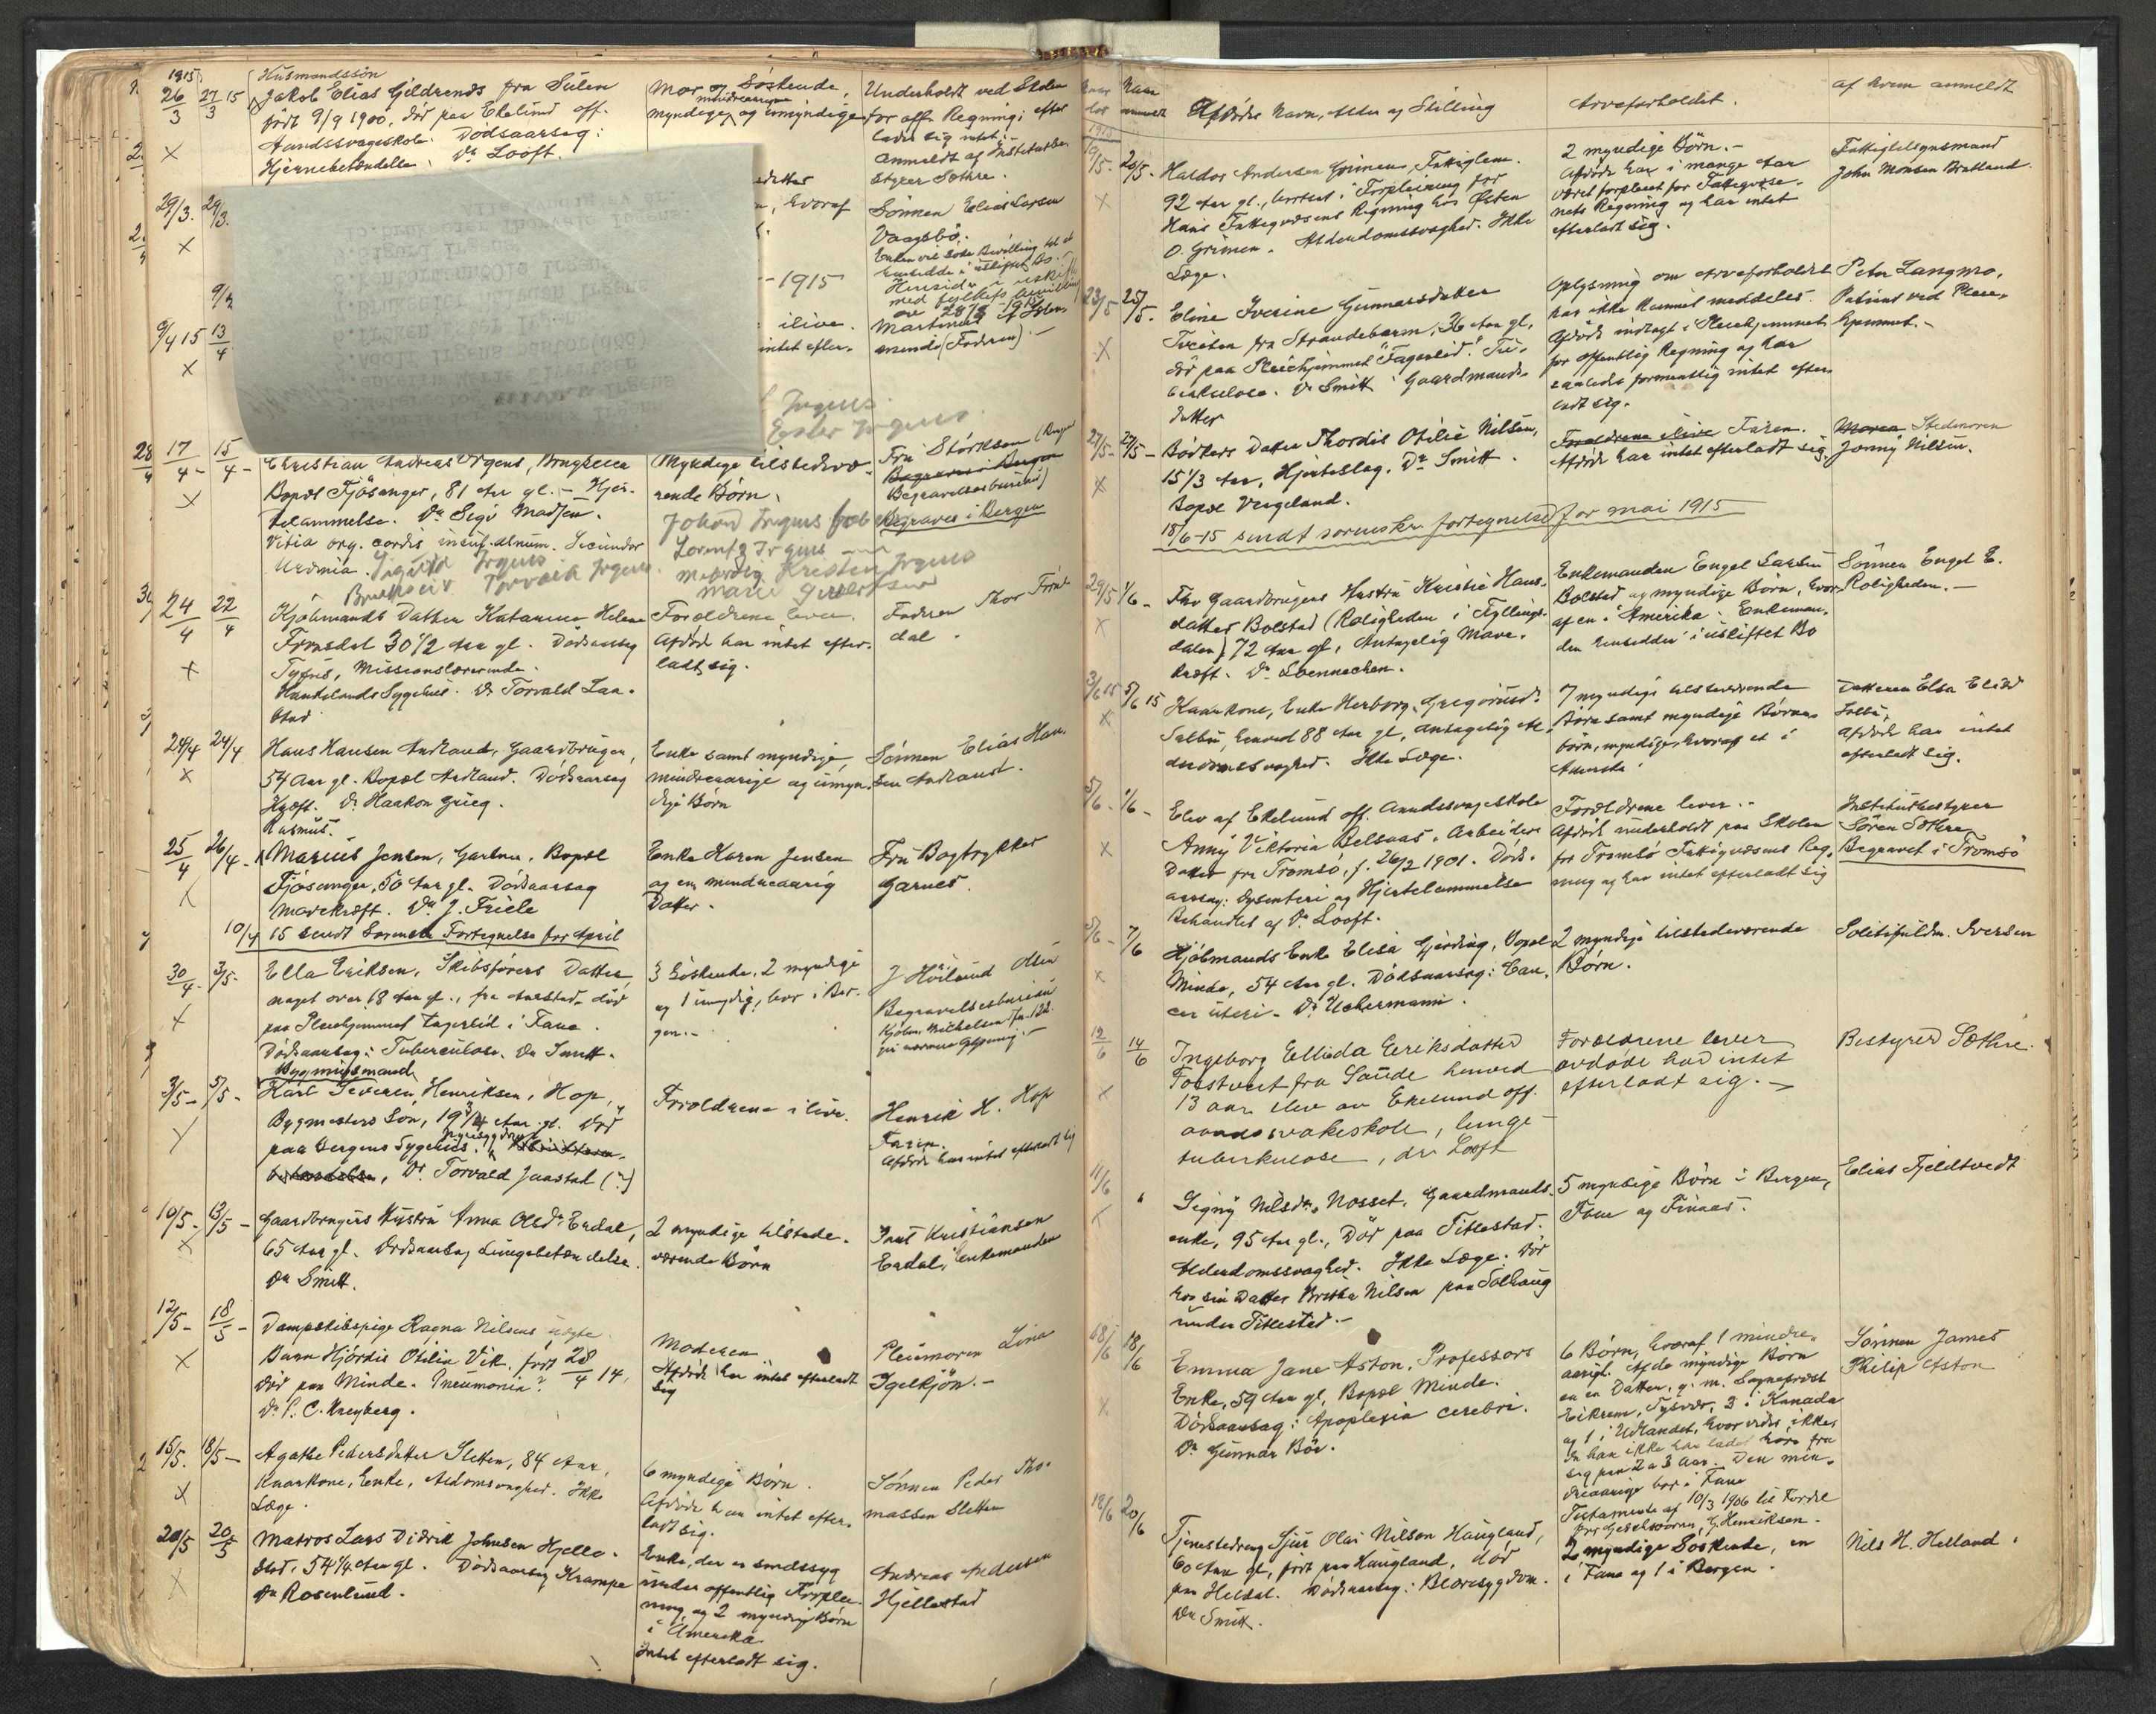 1915
26/3 27/3 15
Husmandssön
Jakob Elias Gildrenæs fra Sulen
født 9/9 1900, död paa Ekelund off.
Aandssvageskole. Dödsaarsag:
Hjernebetændelse. Dr Looft.
Mor og Söskende,
myndige, mindreaarige og umyndige
Underholdt ved Skolen
for off. Regning; efter
lader sig intet.
Anmeldt af Institutbe
styrer Sæthre.
29/3. 29/3.
hvoraf
Sönnen Elias Larsen
Vaagsbö.
Enken vil söke Bevilling til at
hensidde i uskiftet Bo.
1915
9/4 15 13/4
ilive.
intet efter-
(Faderen)
Irgens
Ester Irgens
17/4 - 15/4 -
Christian Andreas Irgens,
Bopæl Fjösanger, 81 Aar gl. - Hjer-
telammelse. Dr Sigv Madsen.
Vitia org. cordis insuf. Secundær
Urämia. Sigurd Irgens
Brukseier Torvald Irgens
Myndige tilstedevæ-
rende Børn.
Johan Irgens
Lorentz Irgens
Kristen Irgens
Marie
Fru Störksen
Begraves i Bergen
Begravelsesbureau)
Begraves i Bergen
24/4 22/4
Kjöbmands Datter Katarina Helene
Frönsdal 30 1/2 Aar gl. Dödsaarsag
Tyfus, Missionslærerinde.
Haukelands Sygehus. Dr Torvald Laa-
stad
Forældrene lever
Afdöde har intet efter-
ladt sig.
Faderen Thor Fröns
dal.
24/4 24/4
Hans Hansen Aadland, Gaardbruger,
54 Aar gl. Bopæl Aadland. Dödsaarsag
Kræft. Dr Haakon Grieg.
Enke samt myndige
mindreaarige og umyn-
dige Børn
Sönnen Elias Han
sen Aadland.
25/4 26/4 -
Rasmus.
Marius Jensen, Gartner, Bopæl
Fjösanger, 50 Aar gl. Dödsaarsag
Mavekræft. Dr J. Friele
Enke Karen Jensen
og en mindreaarig
Datter.
Fru Bogtrykker
Garnes.
10/4 15 sendt Sorensk. Fortegnelse for April
30/4 - 3/5 -
Ella Eriksen, Skibsförers Datter
noget over 18 Aar gl., fra Aarstad. död
paa Pleiehjemmet Fagerlid i Fana.
Dödsaarsag: Tuberculose. Dr Smitt.
3 Söskende, 2 myndige
og 1 umyndig, bor i Ber-
gen. -
J Höilund Olsen
Begravelsesbureau
3/5 - 5/5 -
Bygningsmand
Karl Severin Henriksen, Hop,
Bygmesters Sön, 19 3/4 Aar gl. Död
paa Bergens Sygehus. Nyresygdom
Dr. Torvald Jaastad (?)
Forældrene ilive.
Henrik H. Hop
Faren.
Afdöde har intet efterladt sig
10/5 - 13/5 -
Gaardbrugers Hustru Anna Olsdr Erdal,
65 Aar gl. Dödsaarsag Lungebetændelse.
Dr Smitt.
2 myndige tilstede-
værende Børn
Knut Kristiansen
Erdal, Enkemanden
12/5 - 18/5 -
Dampskibspige Ragna Nilsens uægte
Barn Hjördis Otilia Vik. född 28/4 14,
död paa Minde. Pneumonia?
Dr P. C. Kreyberg.
Moderen
Afdöde har intet efterladt
sig
Pleiemoren Lina
Igelkjön. -
15/5. 18/5 -
Agathe Pedersdatter Sletten, 84 Aar,
Kaarkone, Enke, Aldomsvaghed. Ikke
Læge.
6 myndige Børn.
Afdöde har intet efter-
ladt sig.
Sönnen Peder Tho-
massen Sletten
20/5 20/5
Matros Lars Didrik Johnsen Hjelle-
stad, 54 1/4 Aar gl. Dödsaarsag Krampe
Dr Rosenlund.
Enke, der er sindssyg
under offentlig Forplei-
ning, og 2 myndige Børn
i Amerika.
Intet efterladt sig.
Andreas Andersen
Hjellestad
Afdödes Navn, Alder og Stilling
Arveforholdet.
af hvem anmeldt
1915
19/5 - 20/5 -
Haldor Andersen Grimen, Fattiglem.
92 Aar gl., bortsat i Forpleining for
Haus Fattigvæsens Regning hos Østen
O. Grimen. Alderdomssvaghed. Ikke
Læge.
2 myndige Børn. -
Afdöde har i mange Aar
været forpleiet for Fattigvæse-
nets Regning og har intet
efterladt sig.
Fattigtilsynsmand
John Monsen Bratland
23/5 25/5.
Eline Iverine Gunnarsdatter
Tveiten fra Strandebarm, 36 Aar gl,
död paa Pleiehjemmet "Fagerlid". Tu-
berkulose. Dr Smitt. Gaardmands-
datter
Oplysning om Arveforholdet
har ikke kunnet meddeles.
Afdöde indlagt i Pleiehjemmet
for offentlig Regning og har
saaledes formentlig intet efter-
ladt sig.
Peter Langmo,
Patient ved Pleie-
hjemmet. -
27/5 - 27/5 -
Bödkers Datter Thordis Otilie Nilsen,
15 1/3 Aar, Hjerteslag. Dr Smitt.
Bopæl Vergeland.
Forældrene ilive Faren.
Afdöde har intet efterladt sig.
Moren Stedmoren
Jenny Nilsen.
18/6-15 sendt sorenskr. fortegnelse for mai 1915
29/5 1/6 -
Fhv Gaardbrugers Hustru Kristie Hans-
datter Bolstad (Roligheden i Fyllings-
dalen) 72 Aar gl, Antagelig Mave-
kræft. Dr Loennechen.
Enkemanden Engel Larsen
Bolstad og myndige Børn, hvor-
af en i Amerika. Enkeman-
den hensidder i uskiftet Bo
Sönnen Engel E.
Roligheden. -
3/6 15 5/6 15
Kaarkone, Enke Herborg Gregoriusdr
Sælbu, henved 88 Aar gl, antagelig Al-
derdomssvaghed. Ikke Læge.
7 myndige tilstedeværende
Børn samt myndige Børne-
børn, myndige, hvoraf et i
Amerika.
Datteren Elsa
Afdöde har intet
efterladt sig.
5/6 - 7/6 -
Elev af Ekelund off. Aandssvageskole
Anny Viktoria Belsaas. Arbeiders
Datter fra Tromsö, f. 26/2 1901. Döds-
aarsag: Dysenteri og Hjertelammelse
Behandlet af Dr Looft.
Forældrene lever. -
Afdöde underholdt paa Skolen
for Tromsö Fattigvæsens Reg-
ning og har intet efterladt sig
Institutbestyrer
Sören Sæthre
Begravet i Tromsö
5/6 - 7/6
Kjöbmands Enke Elisa Gjerding, Bopæl
Minde, 54 Aar gl. Dödsaarsag: Can-
cer uteri. Dr Uchermann.
2 myndige tilstedeværende
Børn.
Politifuldm. Iversen
12/6 14/6
Ingeborg Ellida Eeriksdatter
Forstveit fra Saude henved
13 aar elev av Ekelund off.
aandssvakeskole, lunge-
tuberkulose, dr Looft
Forældrene lever
avdøde har intet
efterladt sig. -
Bestyrer Sæthre.
11/6
Signy Nilsdr Nosset, Gaardmands-
enke, 95 Aar gl., Död paa Titlestad.
Alderdomssvaghed. Ikke Læge. Död
hos sin Datter Britha Nilsen paa Solhaug
under Titlestad. -
5 myndige Børn i Bergen,
Fana og Finaas.
Elias Fjeldtvedt
18/6 18/6
Emma Jane Aston, Professors
Enke, 59 Aar gl, Bopæl Minde.
Dödsaarsag: Apoplexia cerebri.
Dr Gunnar Böe.
6 Børn, hvoraf 1 mindre-
aarigt. Af de myndige Børn
er en Datter, g. m. Sogneprest
Eikrem, Tysvær, 3 i Kanada
og 1 i Udlandet, hvor vides ikke,
da han ikke har ladet höre fra
sig paa 2 a 3 Aar. Den min-
dreaarige bor i Fana
Testamente af 10/3 1906 til Fordel
for Geschwornen, G. Henriksen.
Sönnen James
Philip Aston
18/6 20/6
Tjenestedreng Sjur Olai Nilsen Haugland,
60 Aar gl, född paa Haugland, död
paa Heldal. Dödsaarsag: Blæresygdom.
Dr Smitt.
2 myndige Söskende, en
i Fana og 1 i Bergen.
Nils H. Helland.